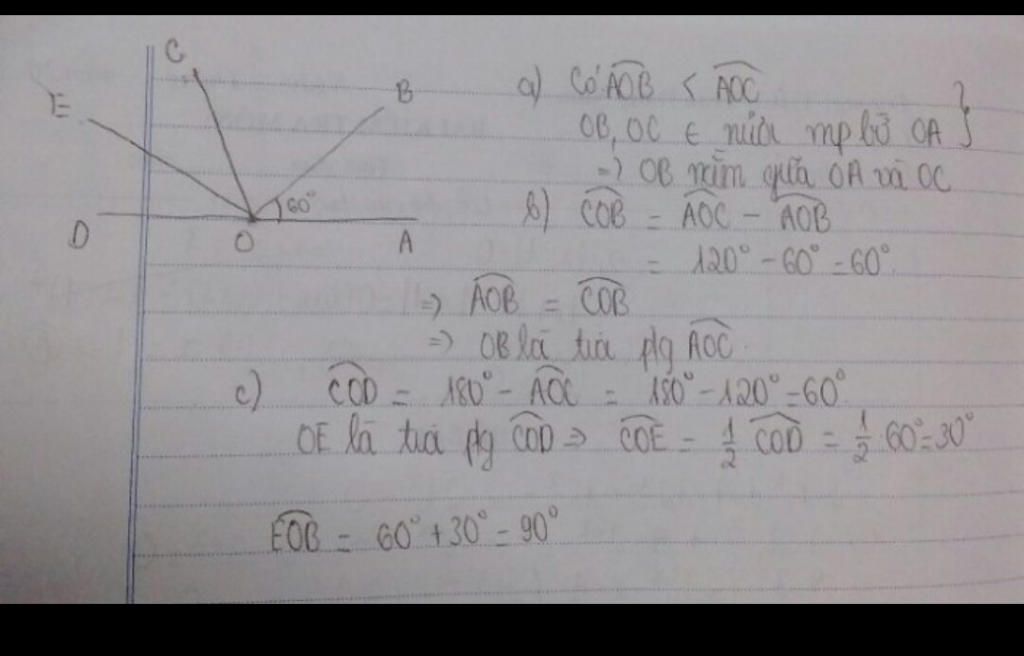 C
E
B
60°
D
O
A
a) Có AOB < AOC }
OB, OC ∈ nửa mp bờ OA
=> OB nằm giữa OA và OC
b) COB = AOC - AOB
= 120° - 60° = 60°
=> AOB = COB
=> OB là tia p/g AOC.
c) COD = 180° - AOC = 180° - 120° = 60°
OE là tia p/g COD => COE = 1/2 COD = 1/2 · 60° = 30°
EOB = 60° + 30° = 90°